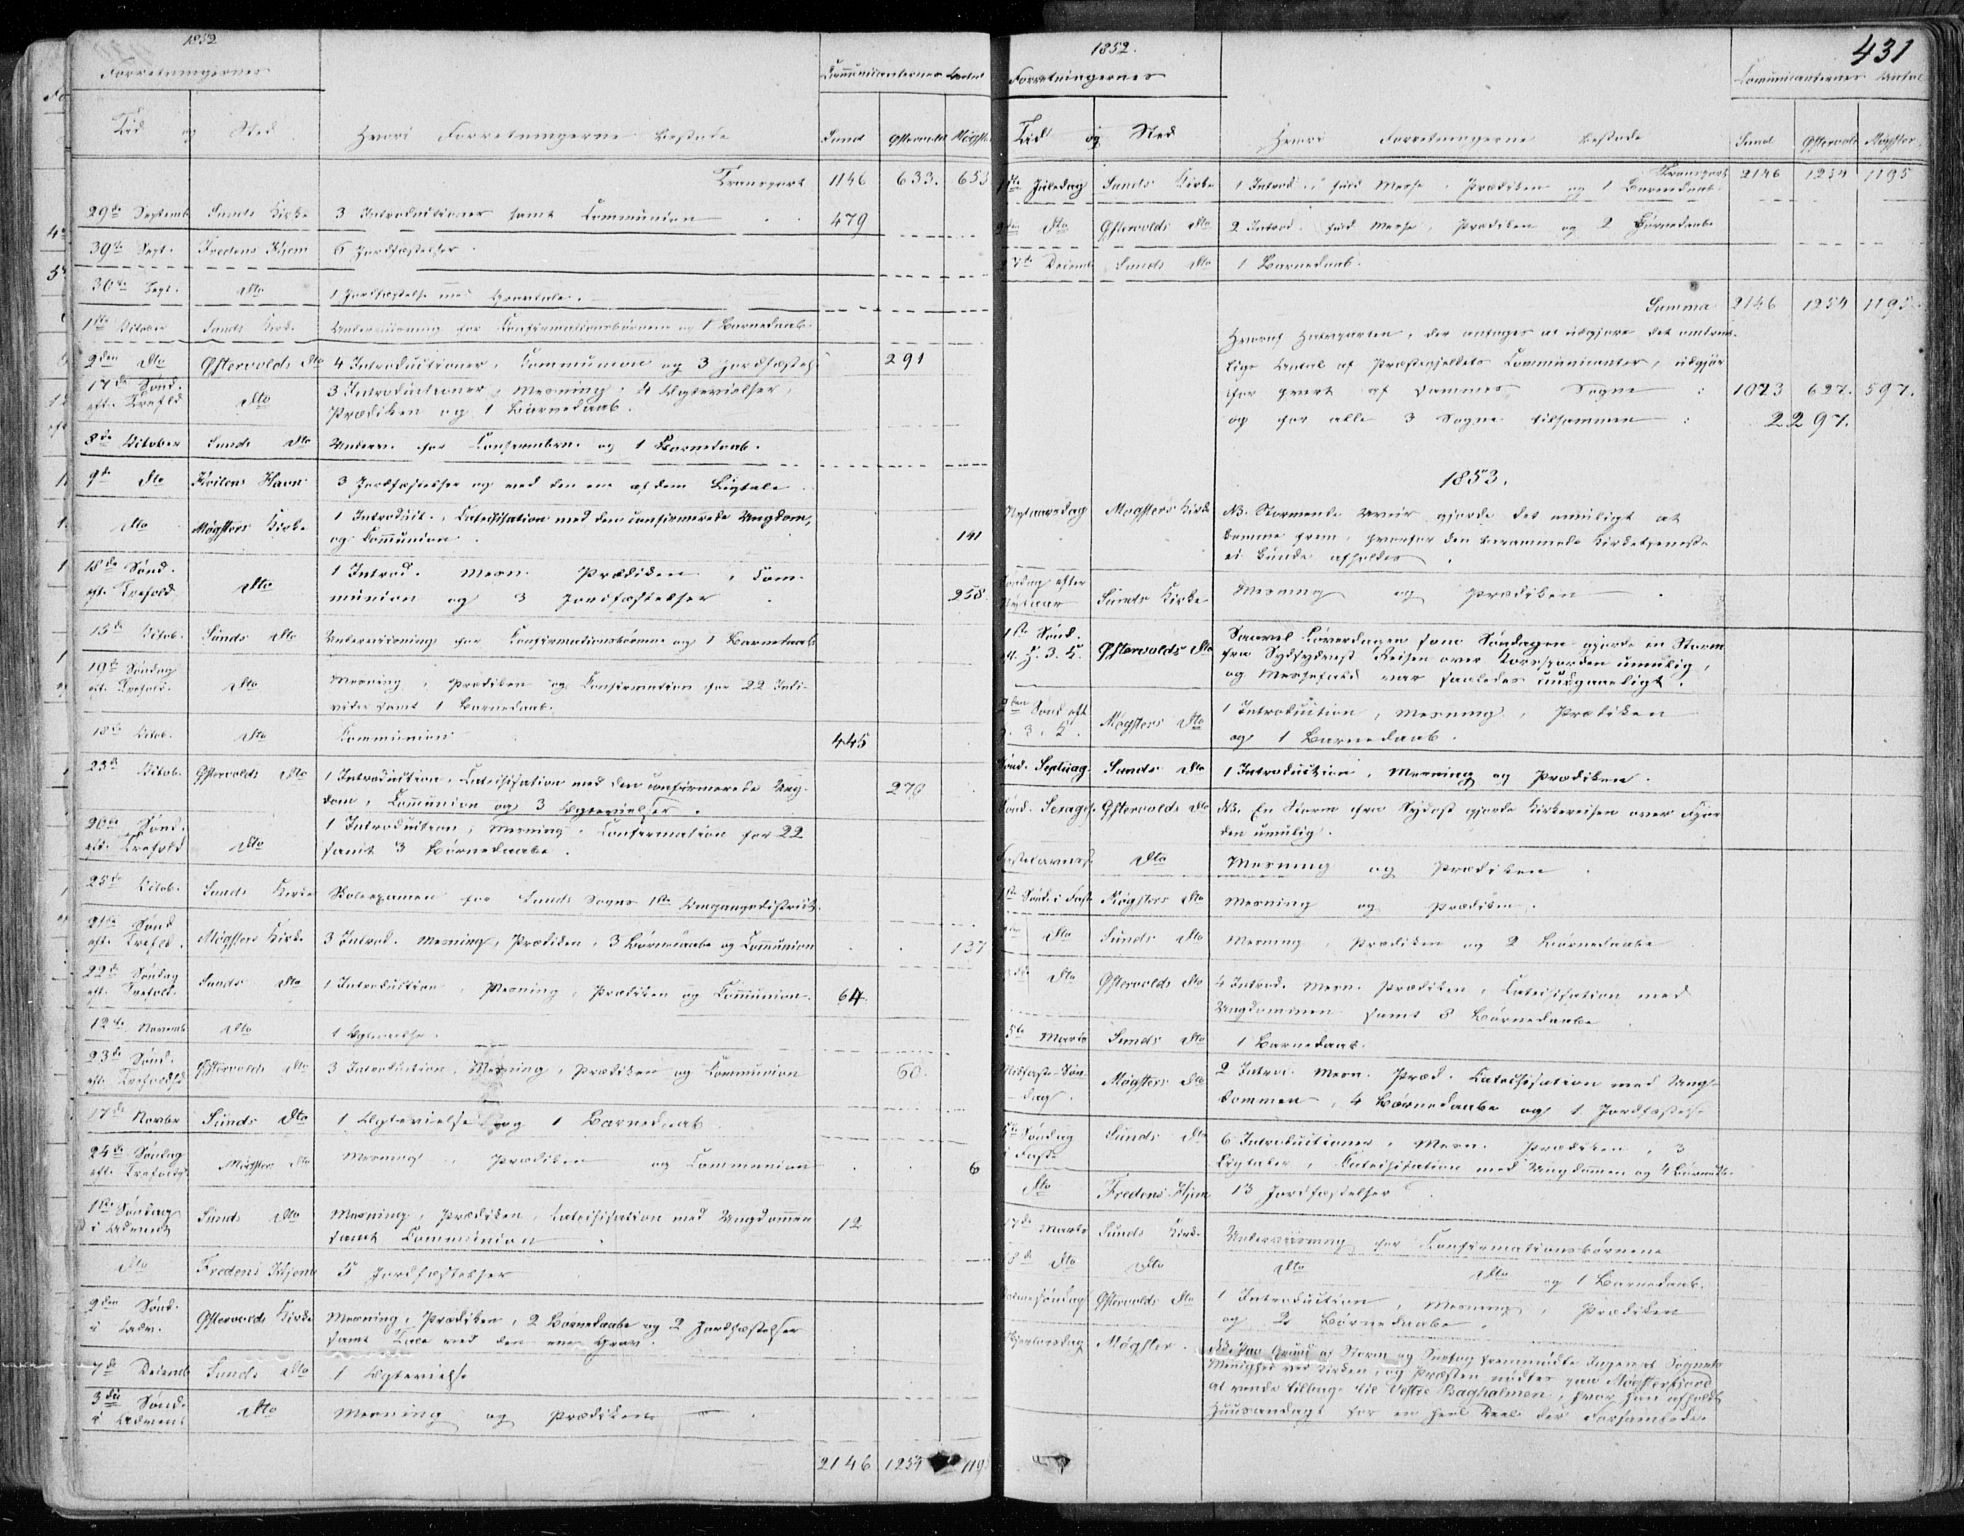 1852
Forretningernes
Communicanternes Antal
Tid og Sted
Hvori Forretningerne bestode
Sund Østervold Møgster
Transport 1146 633. 653
29de Septemb Sunds Kirke 3 Introductioner samt Communion 479
Sept. Fredens Hjem 6 Jordfæstelser.
30te Sept. dto 1 Jordfæstelse med
1ste October Sunds Kirke Underviisning for Confirmationsbørnene og 1 Barnedaab.
2den dto Østervolds dto 4 Introductioner, Communion og 3 Jordfæstels. 291
17de Sønd.
eft. Trefold. dto 3 Introductioner, Mesning, 4 Ægtevielser,
Prædiken og 1 Barnedaab.
8de October Sunds dto Underv. for Confirmbn. og 1 Barnedaab.
9de dto Hvilens Havn 3 Jordfæstelser og ved den ene af dem Ligtale
dto Møgsters Kirke 1 Introduct., Catechisation med den confirmerede Ungdom,
og Communion. 141
18de Sønd.
eft. Trefold. dto 1 Introd. Mesn. Prædiken, Com-
munion og 3 Jordfæstelser. 258.
15de Octob. Sunds dto Underviisning for Confirmationsbørnene og 1 Barnedaab
19de Søndag
eft. Trefold. dto Mesning, Prædiken og Confirmation for 22 Indi-
vider samt 1 Barnedaab.
18de Octob. dto Communion 445
23de Octob. Østervolds dto 1 Introduction, Catechisation med den confirmerede Ung-
dom, Communion og 3 Ægtevielser. 270
20de Sønd.
eft. Trefold dto 1 Introduction, Mesning, Confirmation for 22
samt 3 Børnedaabe.
25de Octob. Sunds Kirke Skoleexamen for Sunds Sogns 1ste Omgangsdistrict.
21de Sønd
eft. Trefold. Møgsters Kirke 3 Introd. Mesning, Prædiken, 3 Børnedaabe og Communion 137
22de Søndag
eft. Trefold. Sunds dto 1 Introduction, Mesning, Prædiken og Communion. 64
12te Novemb dto 1 Ægtevielse.
23de Sønd.
eft. Trefoldhd Østervolds dto 3 Introduction, Mesning, Prædiken og Communion 60.
17de Novbr Sunds dto 1 Ægtevielse og 1 Barnedaab
24de Søndag
eft. Trefoldgh Møgsters dto Mesning, Prædiken og Communion 6
1ste Søndag
i Advent Sunds dto Mesning, Prædiken, Catechisation med Ungdommen
samt Communion. 12
dto Fredens Hjem 5 Jordfæstelser
2den Sønd.
i Adv. Østervolds Kirke Mesning, Prædiken, 2 Børnedaabe og 2 Jordfæstelser
samt Tale ved den ene Grav.
7de Decemb Sunds dto 1 Ægtevielse
3die Sønd.
i Advent dto Mesning og Prædiken.
2146 1254 119
1852. 431
Forretningernes
Communicanternes Antal
Tid og Sted
Hvori Forretningerne bestode
Sund Østervold Møgster.
Transport 2146 1254 1195
1ste Juledag Sunds Kirke 1 Introd., fuld Messe, Prædiken og 1 Barnedaab.
2den dto Østervolds dto 2 Introd. fuld Messe, Prædiken og 2 Børnedaabe
Decemb Sunds dto 1 Barnedaab.
Summa 2146 1254 1195.
Hvoraf Halvparten, der antages at udgjøre det omtrent-
lige Antal af Præstegjeldets Communicanter, udgjør
for hvert af Sammes Sogne : 1073 627. 597.
og for alle 3 Sogne tilsammen : 2297.
1853.
Nytaarsdag Møgsters Kirke NB. Stormende Veir gjorde det umuligt at
komme frem, hvorfor den berammede Kirketjeneste
ei kunde afholdes.
Søndag efter
Nytaar Sunds Kirke Mesning og Prædiken
1ste Sønd.
eft. H. 3. K. Østervolds dto Saavel Løverdagen som Søndagen gjorde en Storm
fra Sydsydvest Reisen over Korsfjorden umulig,
og Messefald var saaledes uundgaaeligt.
2den Sønd eft
H. 3. K. Møgsters dto 1 Introduction, Mesning, Prædiken
og 1 Barnedaab.
Sønd. Septuag. Sunds dto 1 Introduction, Mesning og Prædiken.
Sønd. Sexages. Østervolds dto NB. En Storm fra Sydost gjorde Kirkereisen over Fjor-
den umulig.
Fastelavns dto Mesning og Prædiken.
1ste Sønd. i Faste Møgsters dto Mesning og Prædiken.
dto Sunds dto Mesning, Prædiken og 2 Børnedaabe
dto Østervolds dto 4 Introd. Mesn. Prædiken, Catechisation med
Ungdommen samt 3 Børnedaabe.
5te Marts Sunds dto 1 Barnedaab.
Midfaste-Søn-
dag. Møgsters dto 2 Introd. Mesn. Præd. Catechisation med Ung-
dommen, 4 Børnedaabe og 1 Jordfæstelse
5te Søndag
i Faste Sunds dto 6 Introductioner, Mesn. Prædiken, 3
Ligtaler, Catechisation med Ungdommen og 4 Børnedbe.
dto Fredens Hjem 13 Jordfæstelser.
17de Marts Sunds Kirke Underviisning for Confirmationsbørnene
18de dto dto dto dto og 1 Barnedaab.
Palmesøndag Østervolds dto 1 Introduction, Mesning, Prædiken
og 2 Børnedaabe.
Skjertorsdag Møgster. NB. Paa Grund af Storm og Snefog fremmødte Ingen af Sognets
Menighed ved Kirken, og Præsten nødtes paa Møgsterfjord
at vende tilbage til Vestre Bagholmen, hvor han afholdt
Huusandagt for en heel Deel der Forsamlede.